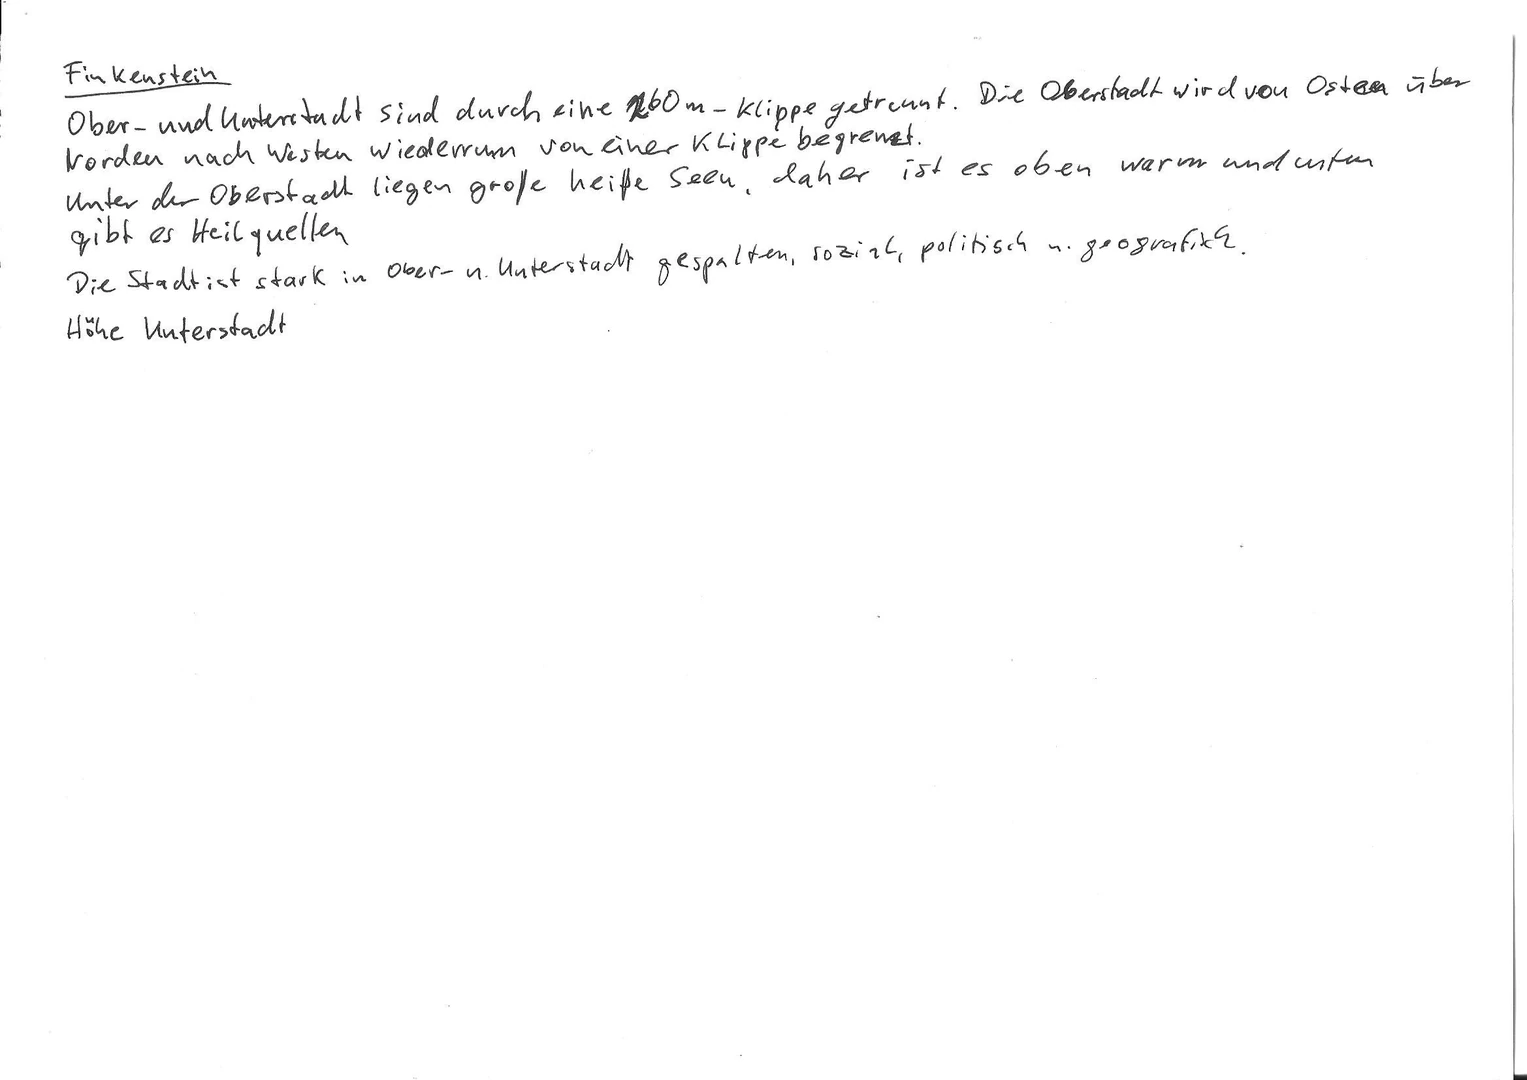 Finkenstein
Ober- und Unterstadt sind durch eine 60m-Klippe getrennt. Die Oberstadt wird von Osten über
Norden nach Westen wiederrum von einer Klippe begrenzt.
Unter der Oberstadt liegen große heiße Seen, daher ist es oben warm und unten
gibt es Heilquellen
Die Stadt ist stark in Ober- u. Unterstadt gespalten, sozial, politisch u. geografisch.
Höhe Unterstadt